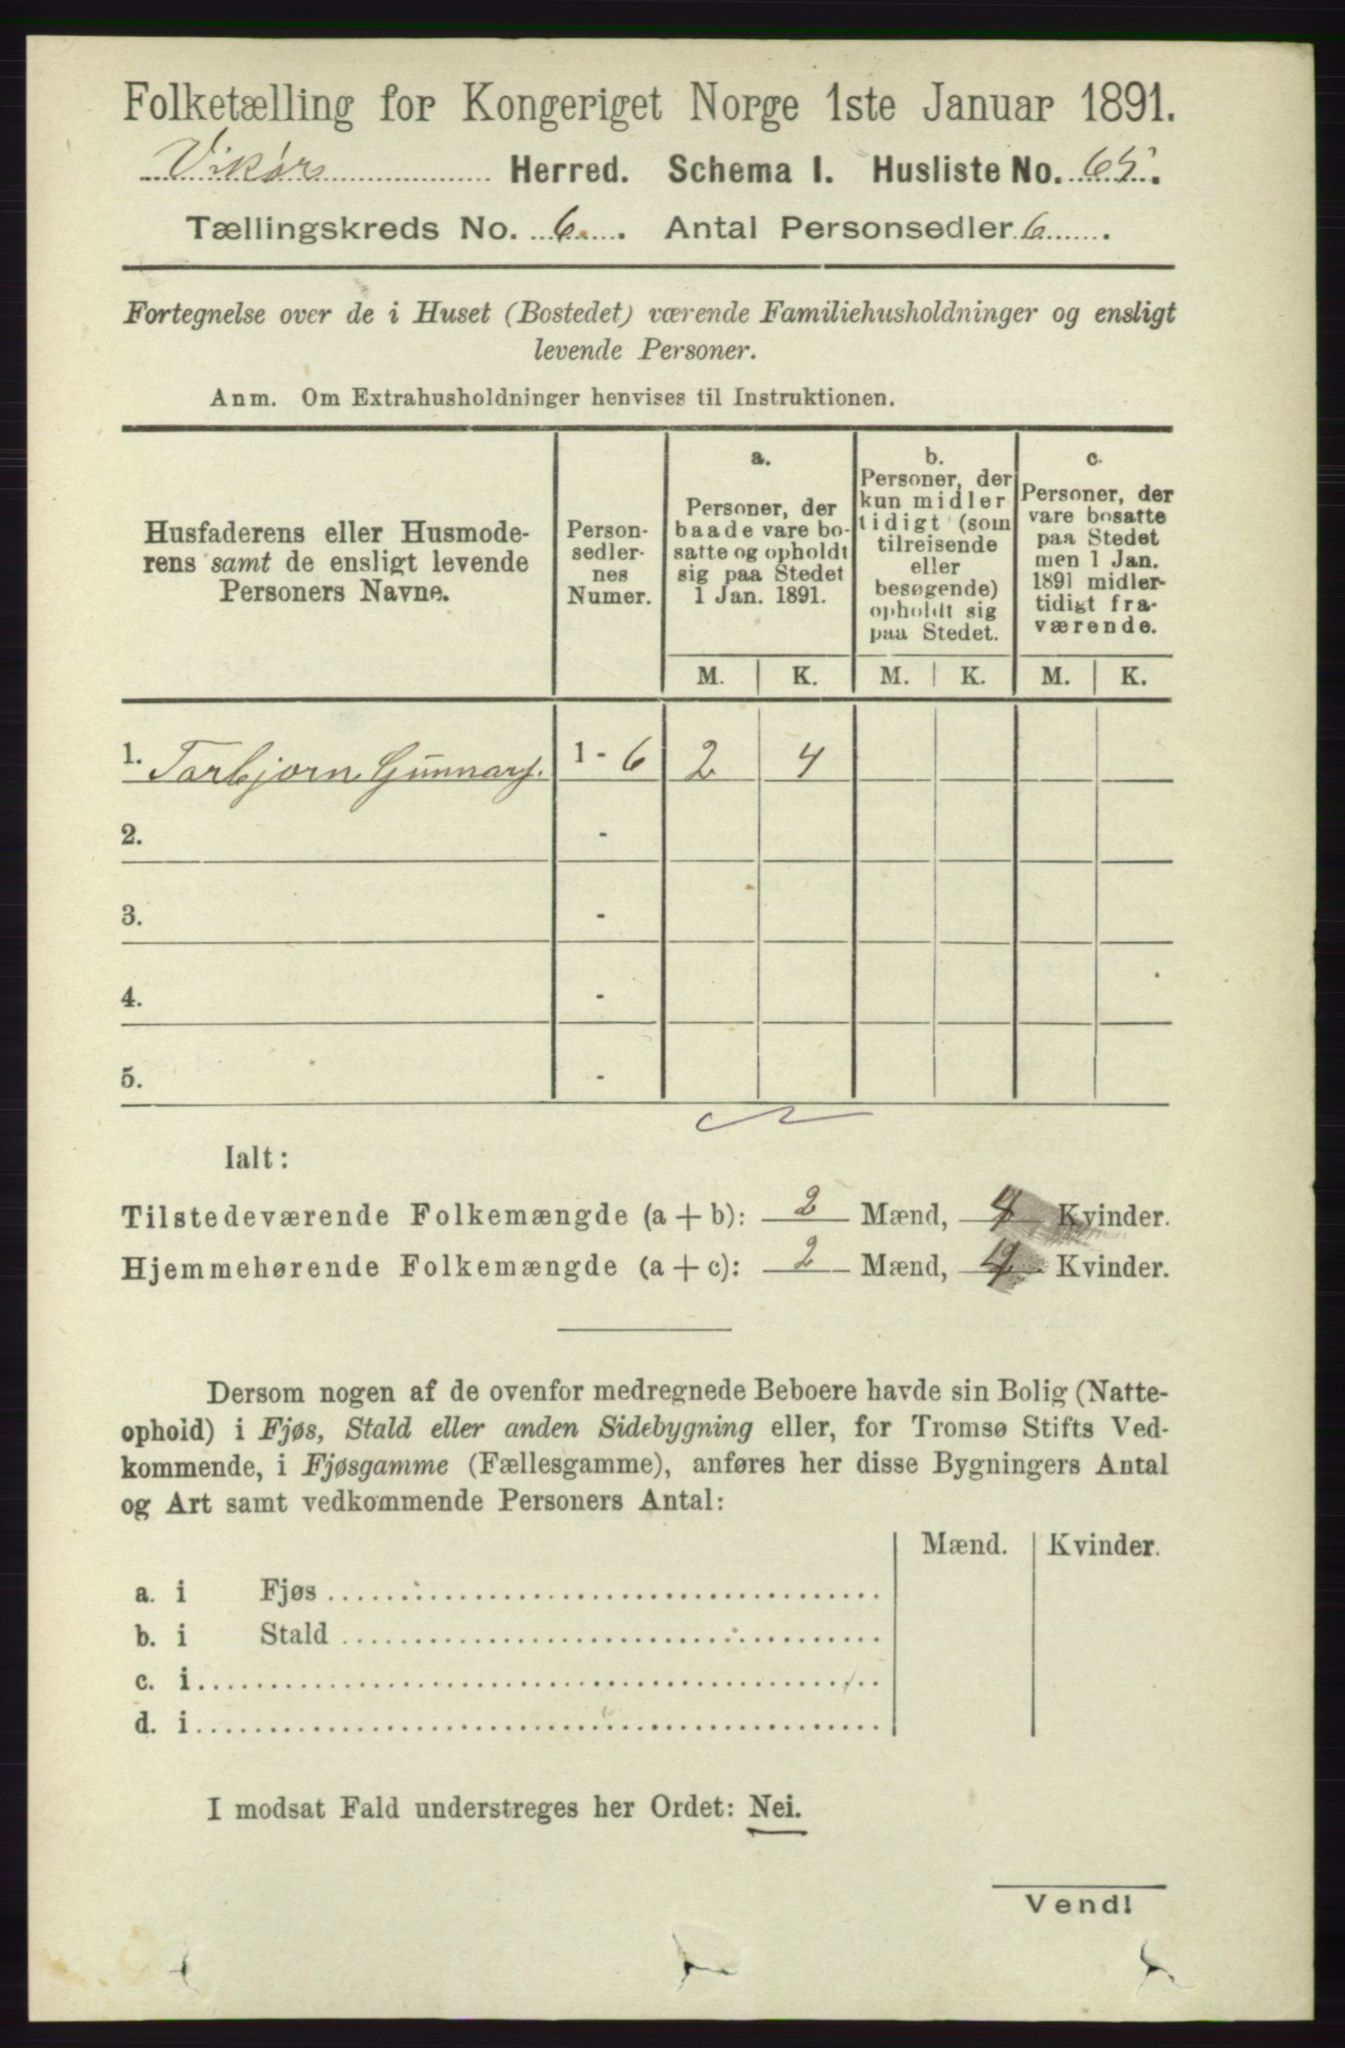 Folketælling for Kongeriget Norge 1ste Januar 1891.
Vikørs Herred. Schema I. Husliste No. 65.
Tællingskreds No. 6. Antal Personsedler 6.
Fortegnelse over de i Huset (Bostedet) værende Familiehusholdninger og ensligt
levende Personer.
Anm. Om Extrahusholdninger henvises til Instruktionen.
Husfaderens eller Husmode-
rens samt de ensligt levende
Personers Navne.
Person-
sedler-
nes
Numer.
a.
Personer, der
baade vare bo-
satte og opholdt
sig paa Stedet
1 Jan. 1891.
b.
Personer, der
kun midler
tidigt (som
tilreisende
eller
besøgende)
opholdt sig
paa Stedet.
c.
Personer, der
vare bosatte
paa Stedet
men 1 Jan.
1891 midler-
tidigt fra-
værende.
M. K. M. K. M. K.
1. Torbjørn Gunnars. 1 - 6 2 4
2. -
3. -
4. -
5. -
Ialt:
Tilstedeværende Folkemængde (a + b): 2 Mænd, 4 Kvinder.
Hjemmehørende Folkemængde (a + c): 2 Mænd, 4 Kvinder.
Dersom nogen af de ovenfor medregnede Beboere havde sin Bolig (Natte-
ophold) i Fjøs, Stald eller anden Sidebygning eller, for Tromsø Stifts Ved-
kommende, i Fjøsgamme (Fællesgamme), anføres her disse Bygningers Antal
og Art samt vedkommende Personers Antal:
Mænd. Kvinder.
a. i Fjøs
b. i Stald
c. i
d. i
I modsat Fald understreges her Ordet: Nei.
Vend!